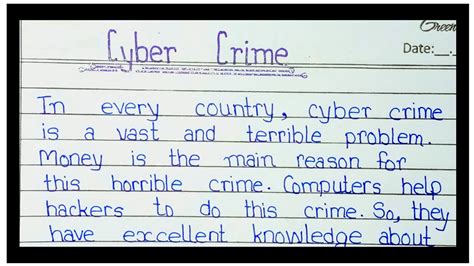 Green
Cyber Crime
Date:__.__
In every country, cyber crime
is a vast and terrible problem.
Money is the main reason for
this horrible crime. Computers help
hackers to do this crime. So, they
have excellent knowledge about